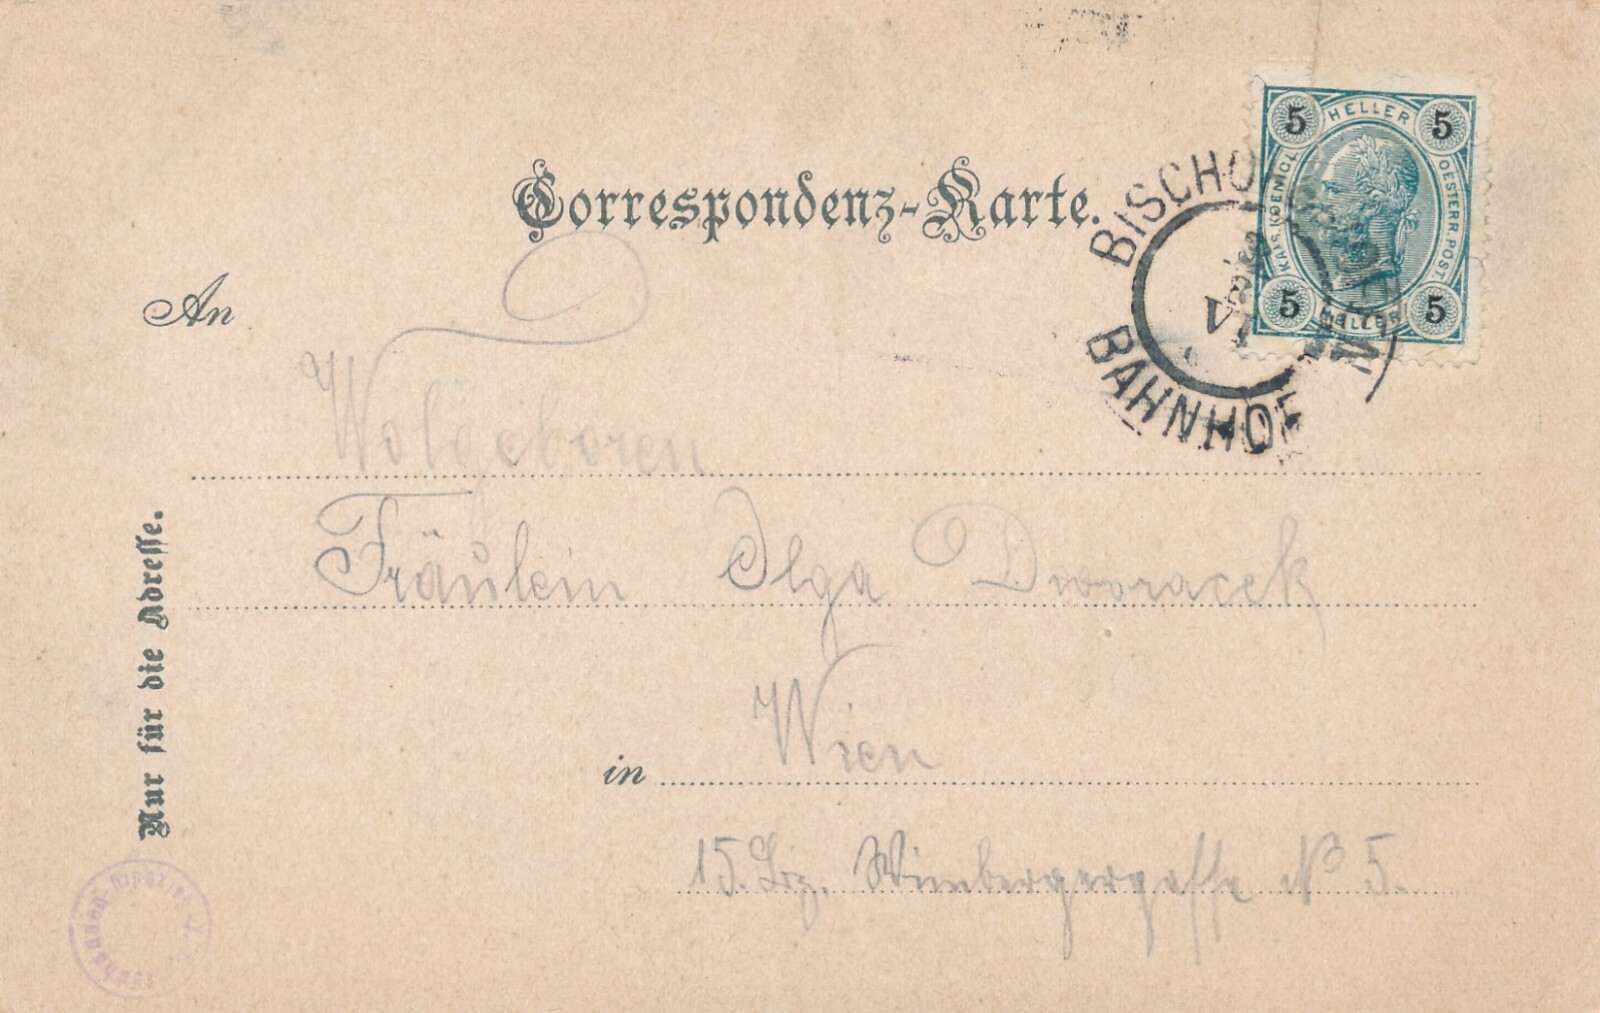 Correspondenz-Karte.
5 HELLER 5
KAIS. KOENIGL.
OESTERR. POST.
5 HELLER 5
BISCHO
VI
BAHNHOF
An
Wolgeboren
Fräulein Olga Dworacek
in Wien
15. Bz. Wimbergergasse № 5.
Nur für die Adresse.